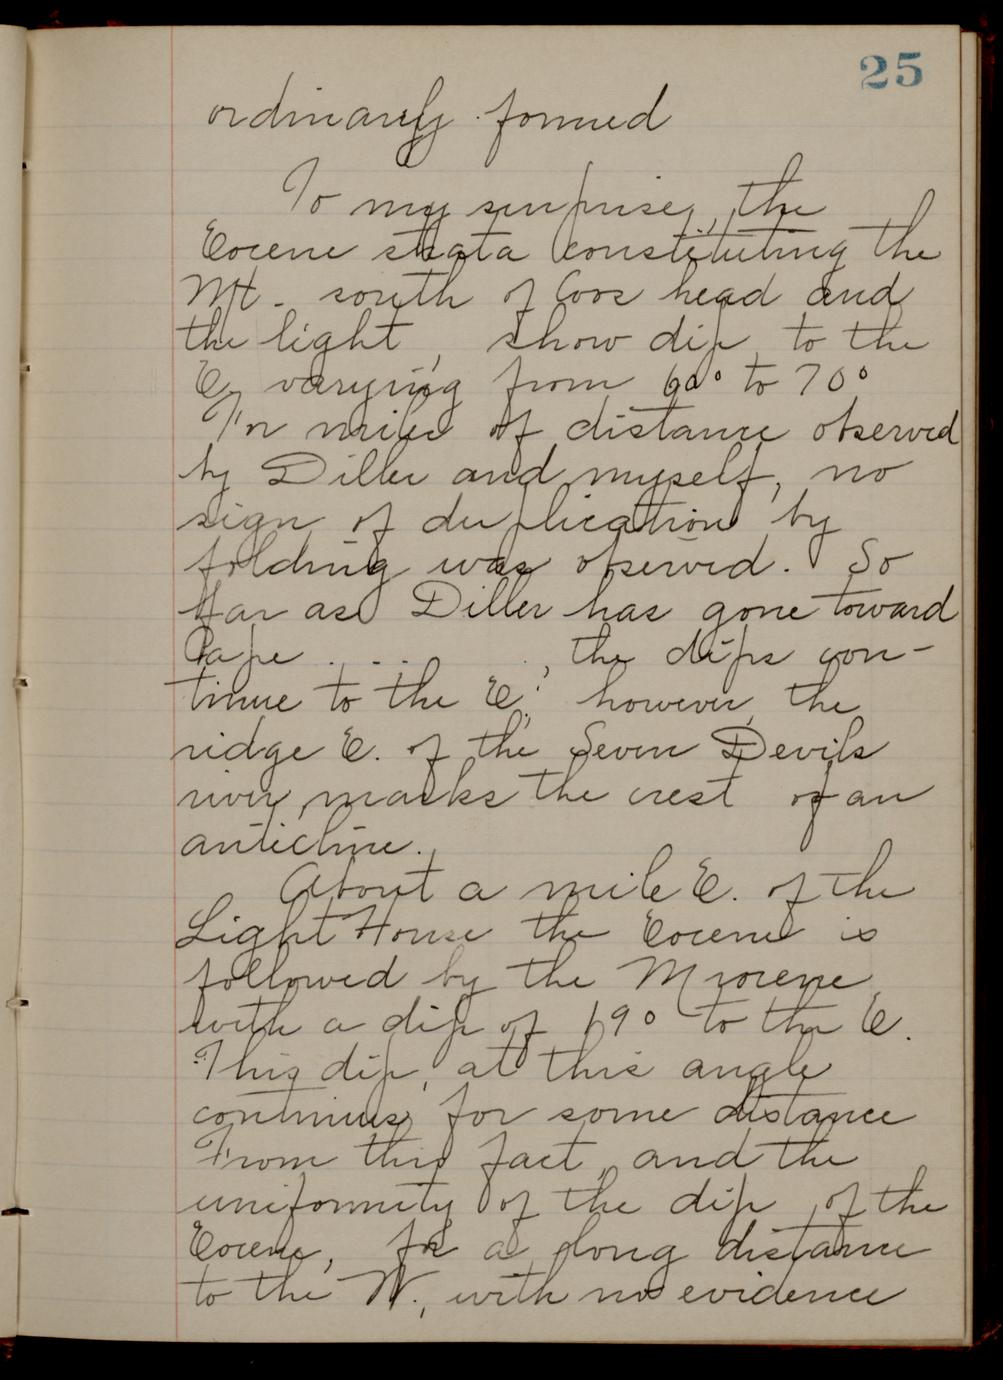 25
ordinarily formed
To my surprise, the
Eocene strata constituting the
Mt. south of Coos head and
the light, show dip to the
E, varying from 60° to 70°
For miles of distance observed
by Diller and myself, no
sign of duplication by
folding was observed. So
far as Diller has gone toward
Cape . . . . , the dips con-
tinue to the E.; however, the
ridge E. of the Seven Devils
river, marks the crest of an
anticline.
About a mile E. of the
Light House the Eocene is
followed by the Miocene,
with a dip of 69° to the E.
This dip, at this angle
continues, for some distance
From this fact, and the
uniformity of the dip, of the
Eocene, for a long distance
to the W., with no evidence